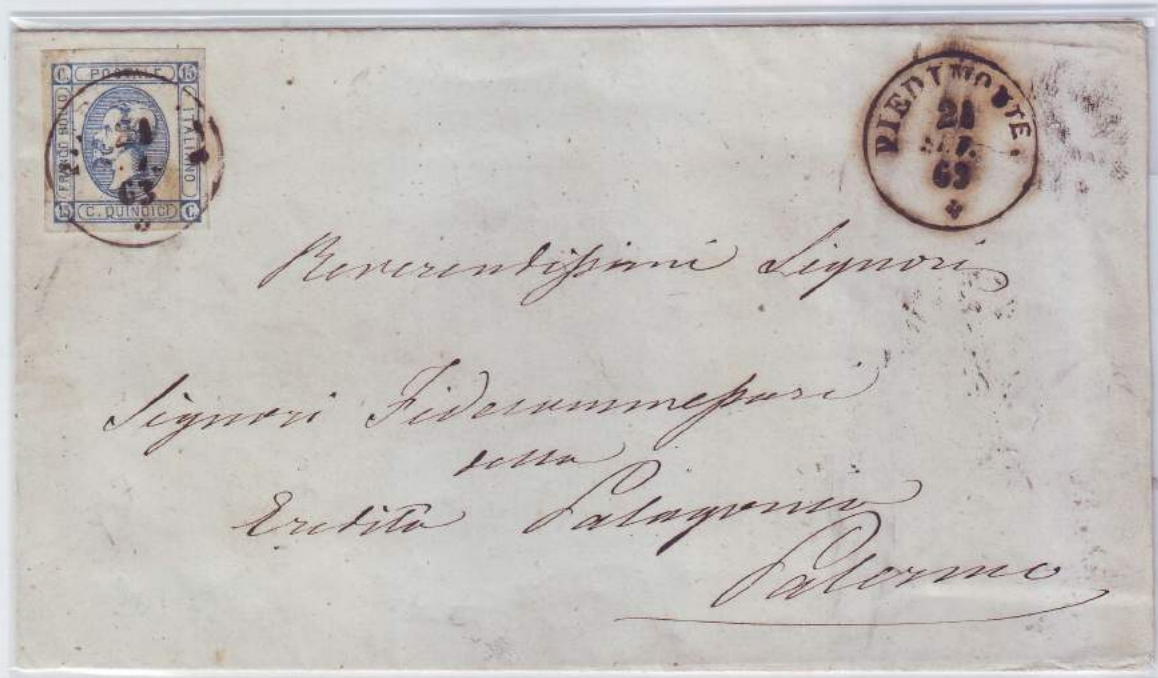 C. POSTALE 15
FRANCO BOLLO
ITALIANO
15 C. QUINDICI C.
63
PIEDIMONTE.
21
63
Reverendissimi Signori
Signori Fidecommessari
della
Eredità Palagonia
Palermo